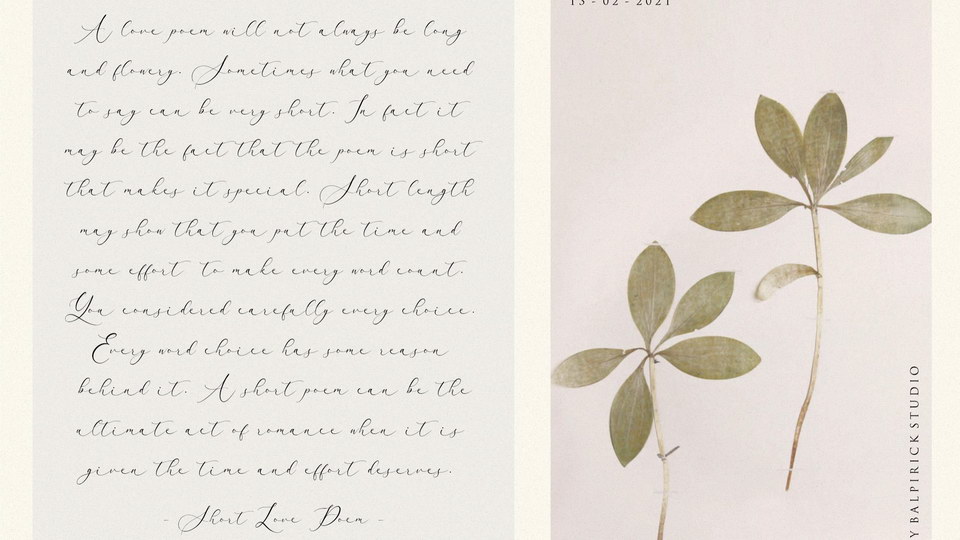 A love poem will not always be long
and flowery. Sometimes what you need
to say can be very short. In fact it
may be the fact that the poem is short
that makes it special. Short length
may show that you put the time and
some effort to make every word count.
You considered carefully every choice.
Every word choice has some reason
behind it. A short poem can be the
ultimate act of romance when it is
given the time and effort deserves.
- Short Love Poem -
13-02-2021
Y BALPIRICK STUDIO